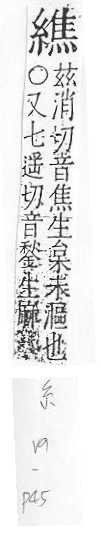 茲消切音焦生枲未漚也
○又七遥切音鍫生
糸
19
-
P45